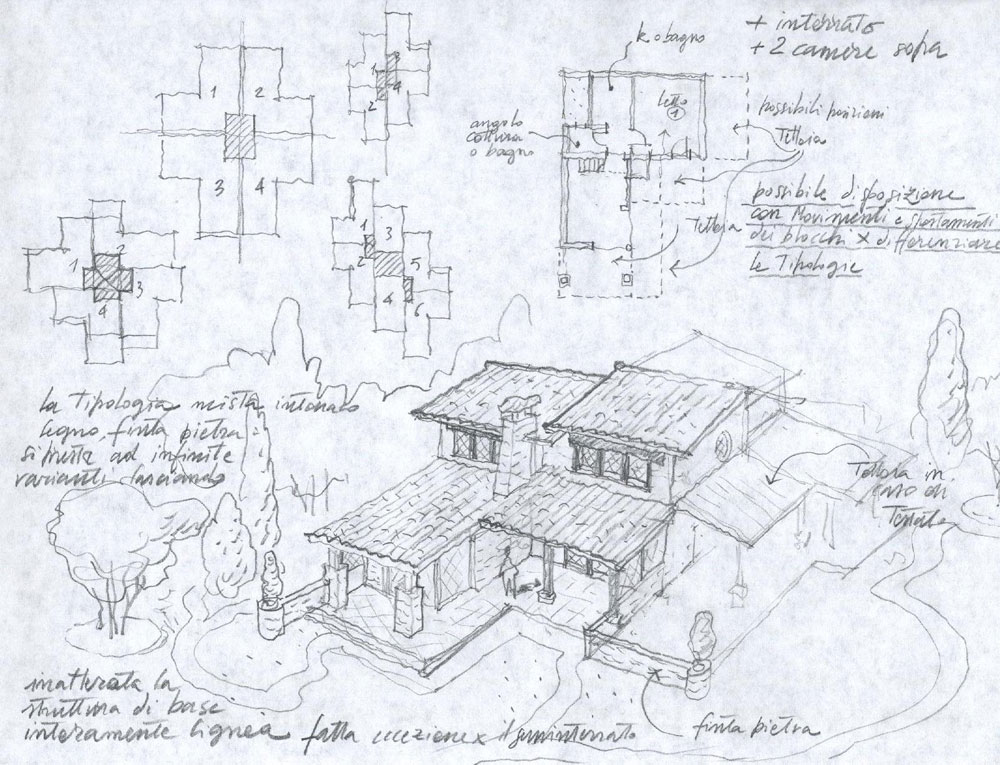 + interrato
+ 2 camere sopra
k. o bagno
letto
1
angolo
cottura
o bagno
possibili posizioni
Tettoia
Tettoia
possibile disposizione
con Movimenti e spostamenti
dei blocchi x differenziare
le Tipologie
1 2
3 4
1 3
2 4
1 2
3
4
1 3
2
5
4
6
La Tipologia mista intonaco
legno, finta pietra
si presta ad infinite
varianti lasciando
inalterata la
struttura di base
interamente lignea fatta eccezione x il seminterrato
Tettoia in
caso di
Testata
finta pietra